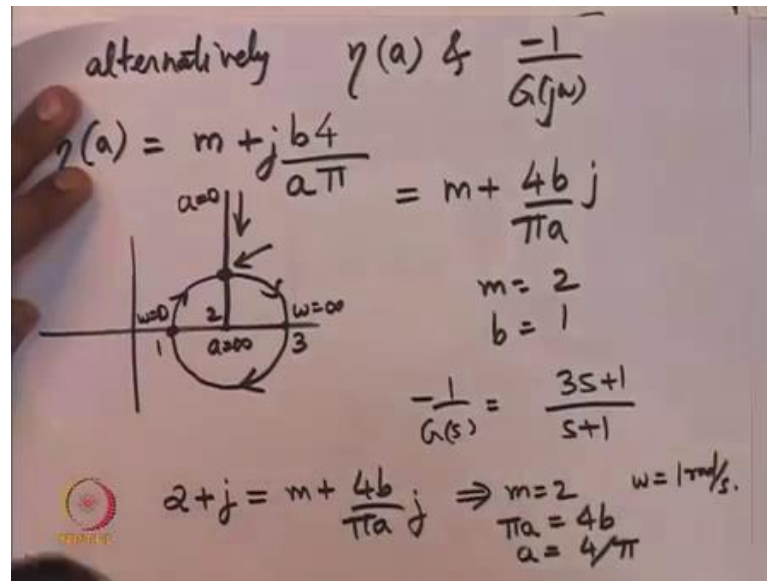 alternatively η(a) & -1/G(jω)
η(a) = m + j b4/aπ
= m + 4b/πa j
a=0
m = 2
b = 1
ω=0 2 ω=∞
1 a=∞ 3
-1/G(s) = 3s+1/s+1
2+j = m + 4b/πa j ⇒ m=2 ω = 1 rad/s.
πa = 4b
a = 4/π
NPTEL